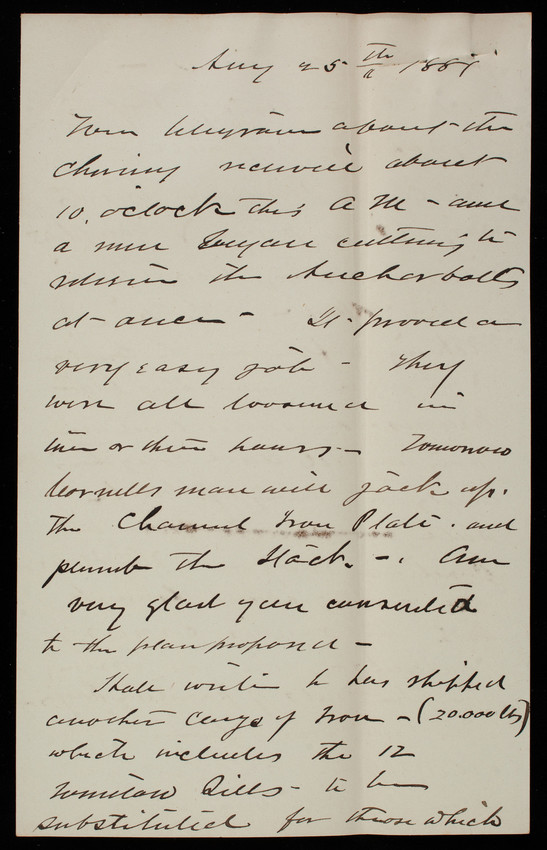 Aug 25th 188
Your telegram about the
chimney received about
10. o'clock this A M - and
a man began cutting to
release the Anchor bolts
at once - It proved a
very easy job - They
were all loosened in
two or three hours - Tomorrow
Cornells man will jack up.
the Channel Iron Plate. and
plumb the Stack. - . Am
very glad you consented
to the plan proposed -
Hale writes he has shipped
another cargo of Iron - (20.000 lbs)
which includes the 12
Window Sills - to be
substituted for those which